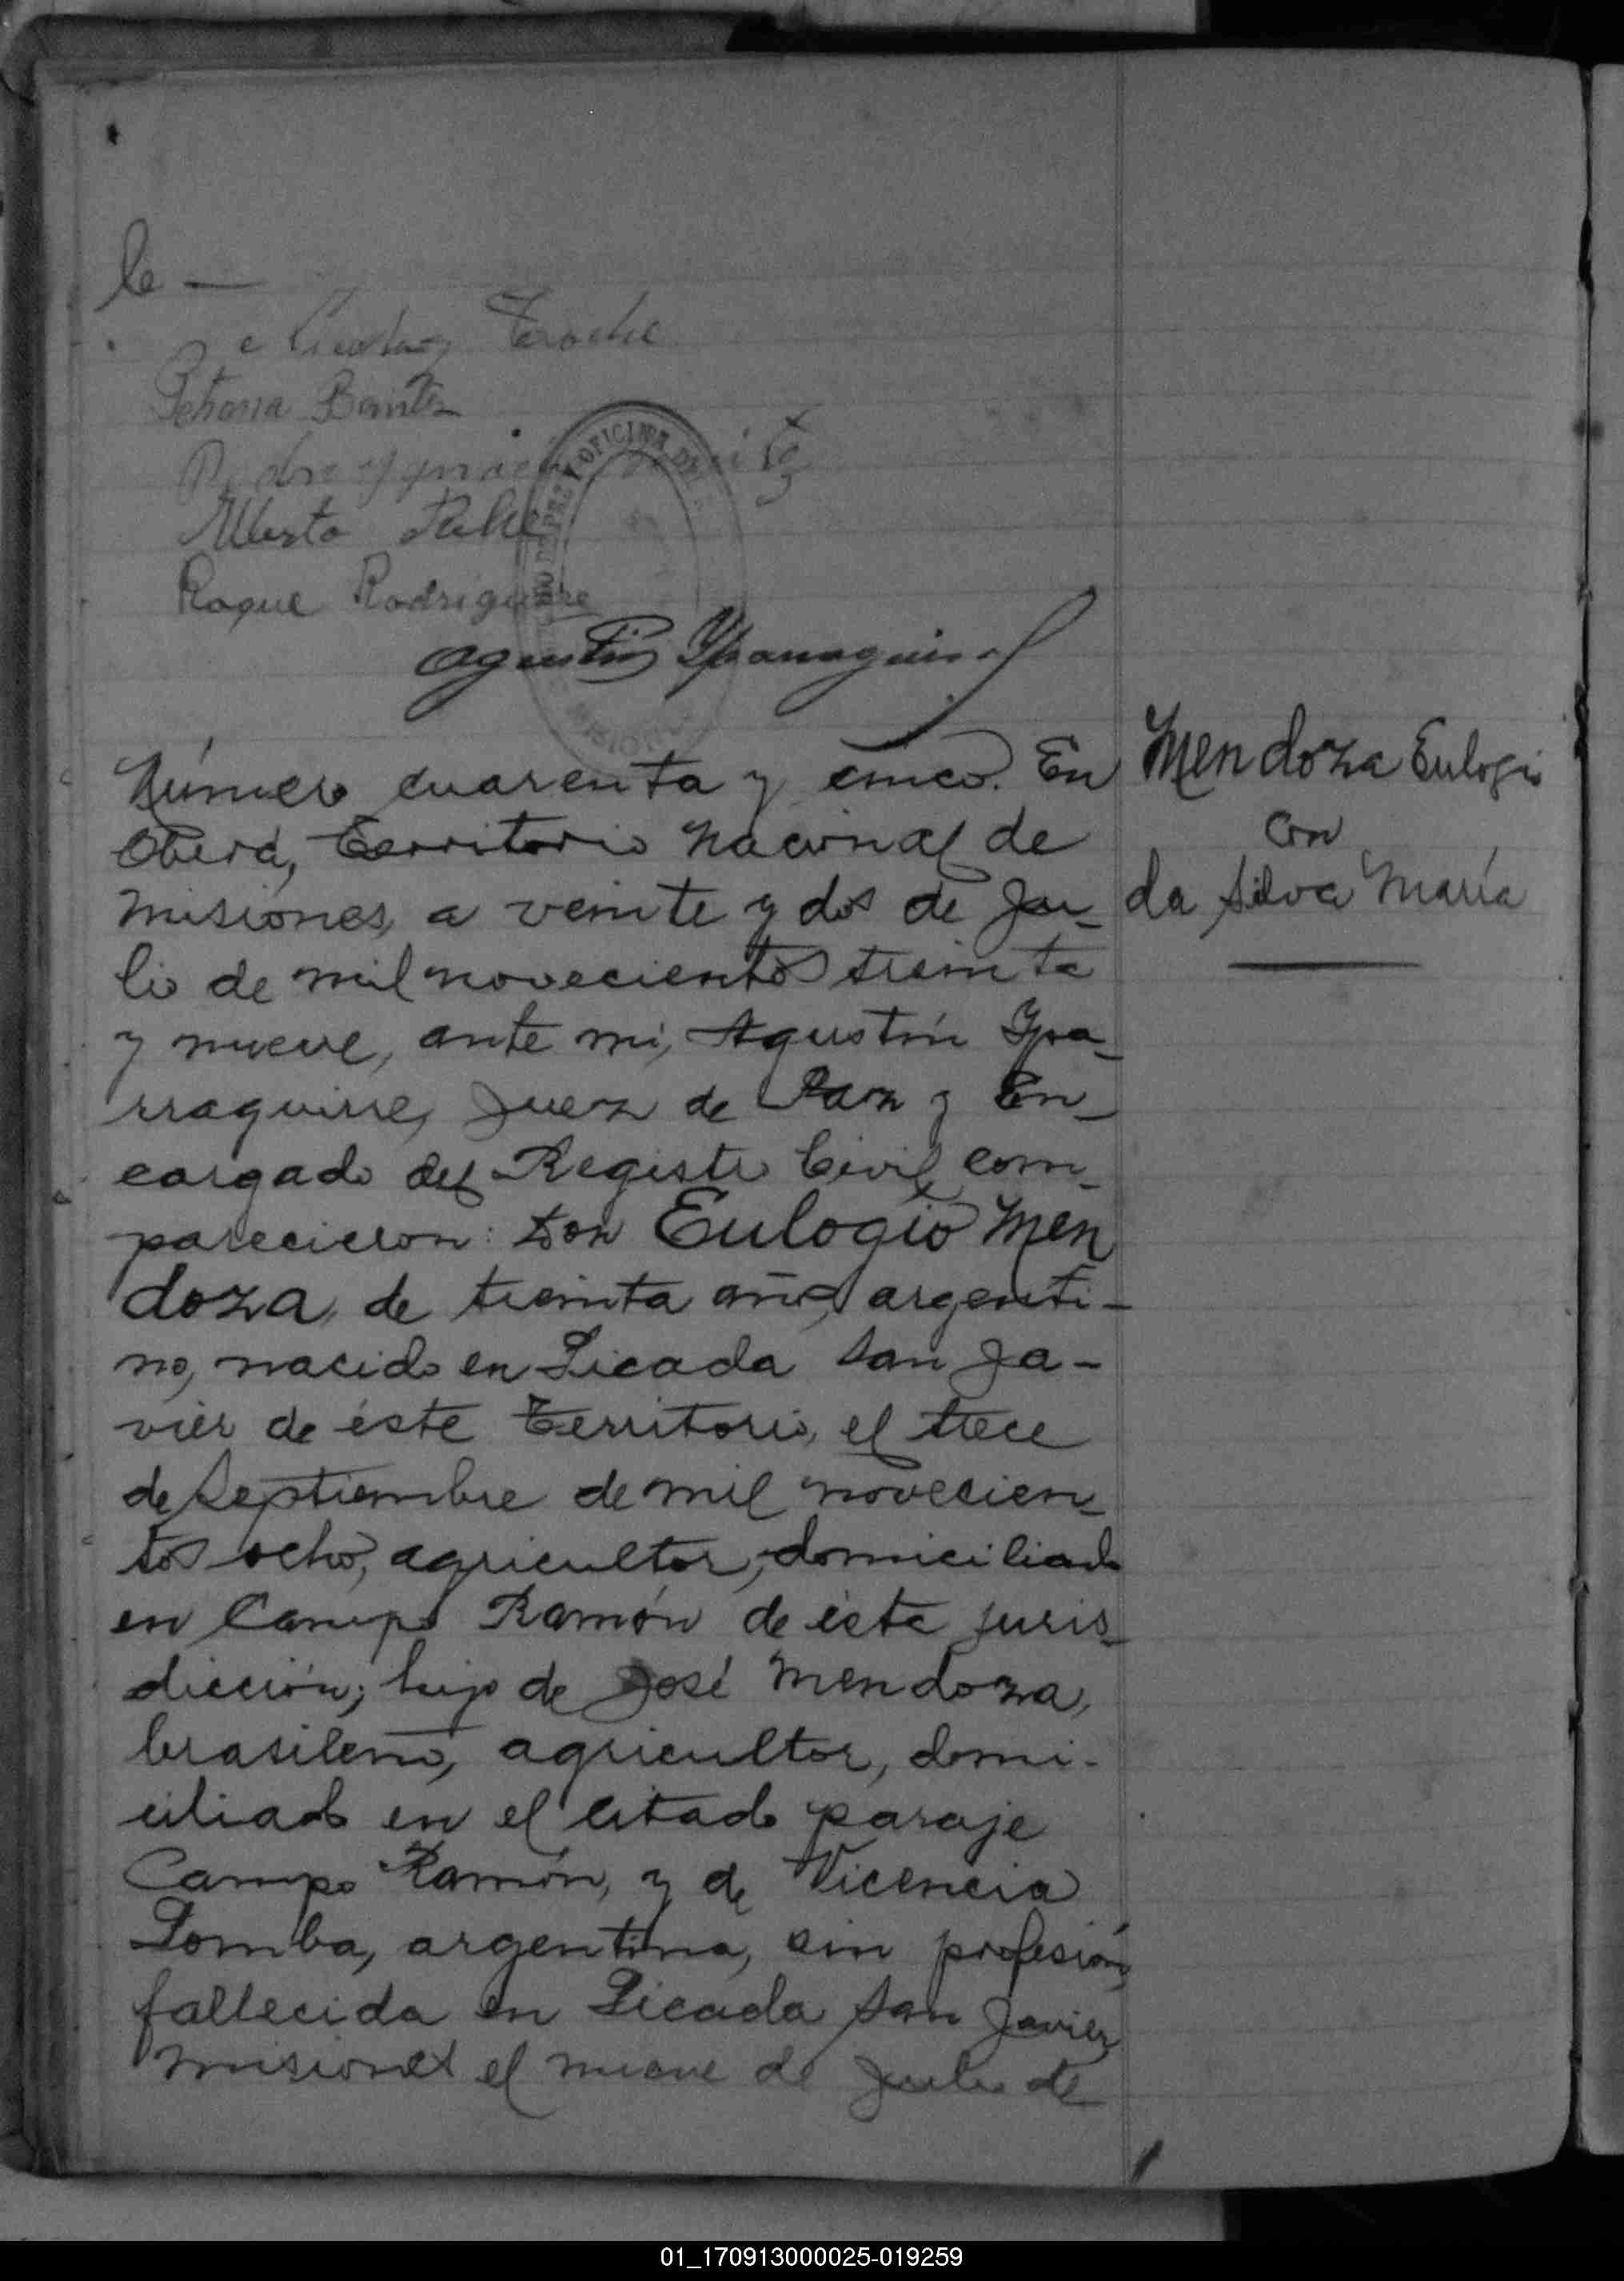 le —
Petrona Benitez
Alberto
Roque Rodriguez
Agustin Yparraguirre
OFICINA DEL
MISIONES
Número cuarenta y cinco. En
Oberá, Territorio Nacional de
Misiones, a veinte y dos de Ju-
lio de mil novecientos treinta
y nueve, ante mí, Agustín Ypa-
rraguirre, Juez de Paz y En-
cargado del Registro Civil, com-
parecieron: Don Eulogio Men
doza, de treinta años, argenti-
no, nacido en Picada San Ja-
vier de éste Territorio, el trece
de Septiembre de mil novecien-
tos ocho, agricultor, domiciliado
en Campo Ramón de ésta juris-
dicción; hijo de José Mendoza,
brasileño, agricultor, domi-
ciliado en el citado paraje
Campo Ramón, y de Vicencia
Lomba, argentina, sin profesión,
fallecida en Picada San Javier,
Misiones el nueve de Julio de
Mendoza Eulogio
con
da Silva María
01_170913000025-019259